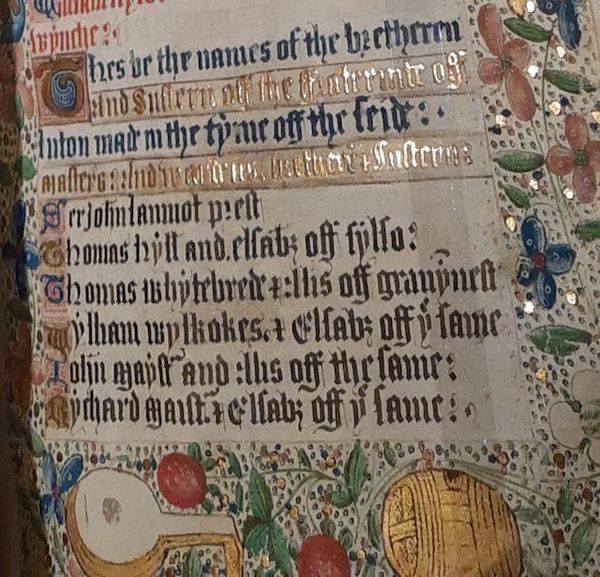 wynche :
Thes be the names of the bretheren
And Sustern off the fraternite off
luton mad in the tyme off the seide :
masters : And wardens, bretheren & Susterns :
Ser john lammot prest
Thomas hyll and elsabꝫ off sylso :
Thomas whytebrede & Alis off gravynest
Wylliam wylkokes . & Elsabꝫ off yͤ same
John mayst̄ and Alis off the same :
Rychard maist̄ . & Elsabꝫ off yͤ same :